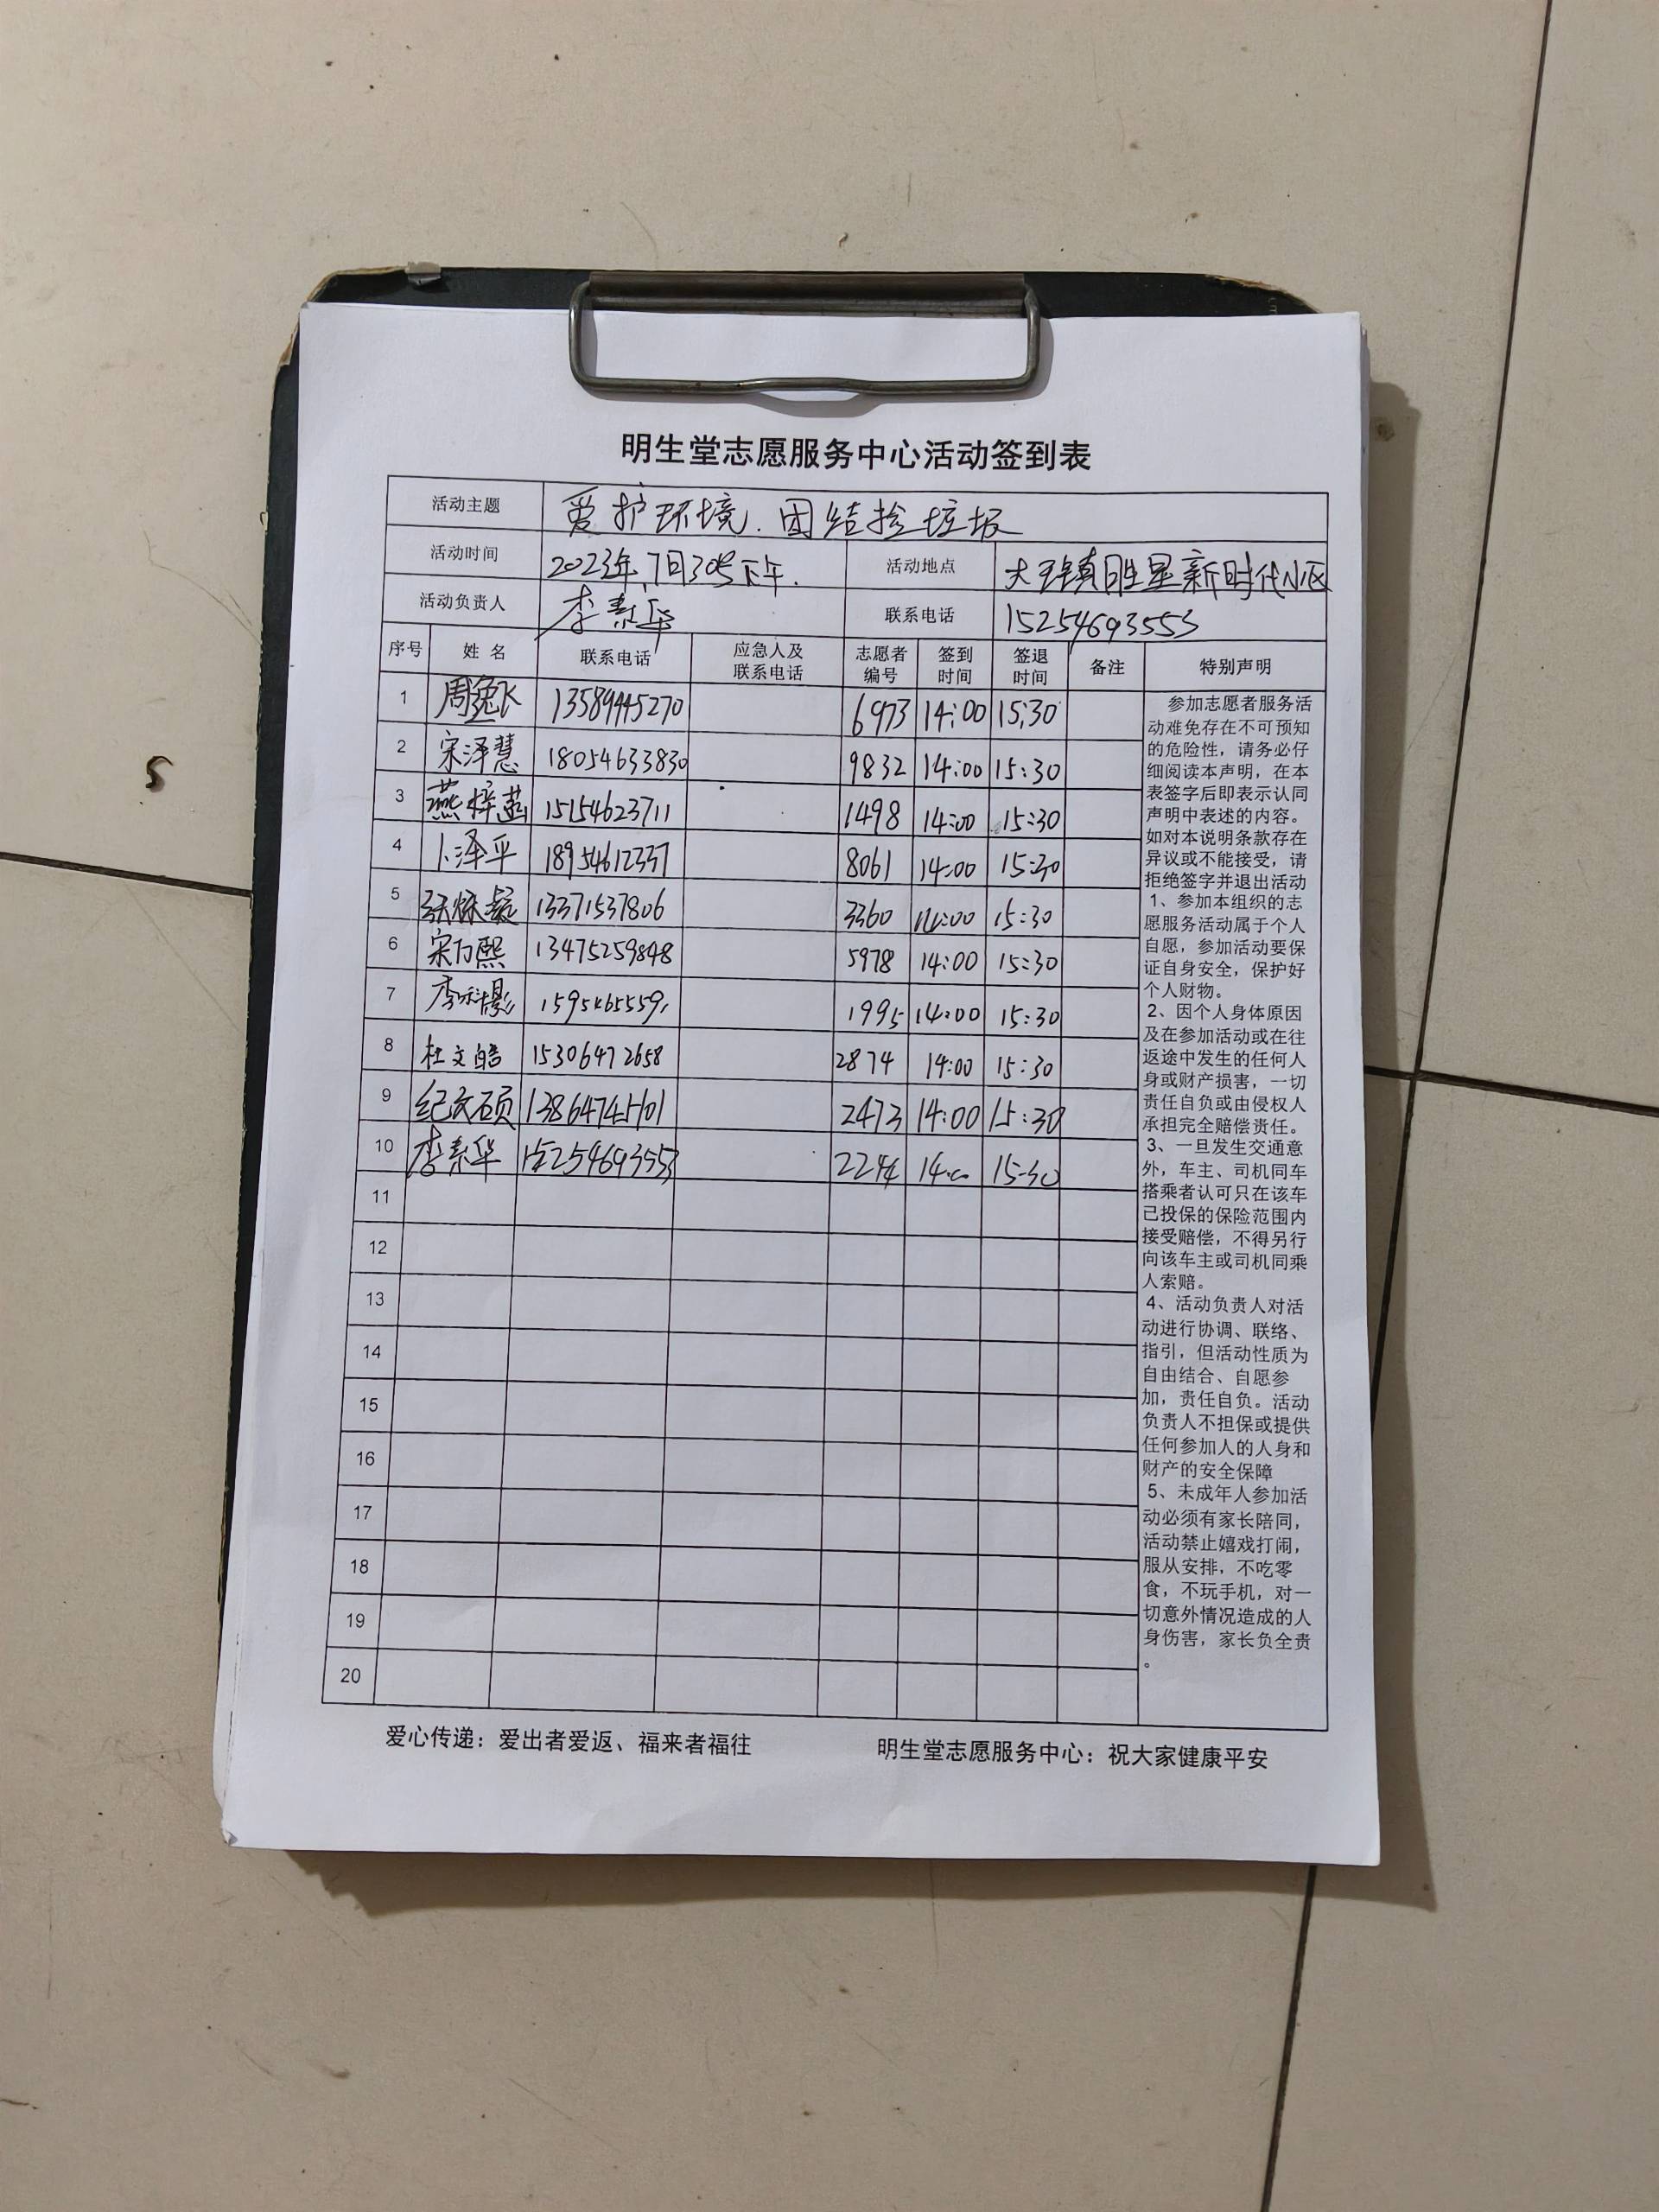 明生堂志愿服务中心活动签到表
活动主题 爱护环境.团结捡垃圾
活动时间 2023年7月30号下午. 活动地点 大王镇胜星新时代小区
活动负责人 李素华 联系电话 15254693553
序号 姓名 联系电话 应急人及联系电话 志愿者编号 签到时间 签退时间 备注 特别声明
1 13589445270 6973 14:00 15:30
2 宋泽慧 18054633830 9832 14:00 15:30
3 燕梓菡 15154623711 1498 14:00 15:30
4 卜泽平 18954612337 8061 14:00 15:30
5 13371537806 3360 14:00 15:30
6 宋乃熙 13475259848 5978 14:00 15:30
7 1995 14:00 15:30
8 杜文皓 15306472658 2874 14:00 15:30
9 纪文硕 13864745101 2473 14:00 15:30
10 李素华 15254693553 2244 14:00 15:30
11
12
13
14
15
16
17
18
19
20
参加志愿者服务活
动难免存在不可预知
的危险性，请务必仔
细阅读本声明，在本
表签字后即表示认同
声明中表述的内容。
如对本说明条款存在
异议或不能接受，请
拒绝签字并退出活动
1、参加本组织的志
愿服务活动属于个人
自愿，参加活动要保
证自身安全，保护好
个人财物。
2、因个人身体原因
及在参加活动或在往
返途中发生的任何人
身或财产损害，一切
责任自负或由侵权人
承担完全赔偿责任。
3、一旦发生交通意
外，车主、司机同车
搭乘者认可只在该车
已投保的保险范围内
接受赔偿，不得另行
向该车主或司机同乘
人索赔。
4、活动负责人对活
动进行协调、联络、
指引，但活动性质为
自由结合、自愿参
加，责任自负。活动
负责人不担保或提供
任何参加人的人身和
财产的安全保障
5、未成年人参加活
动必须有家长陪同，
活动禁止嬉戏打闹，
服从安排，不吃零
食，不玩手机，对一
切意外情况造成的人
身伤害，家长负全责
。
爱心传递：爱出者爱返、福来者福往 明生堂志愿服务中心：祝大家健康平安